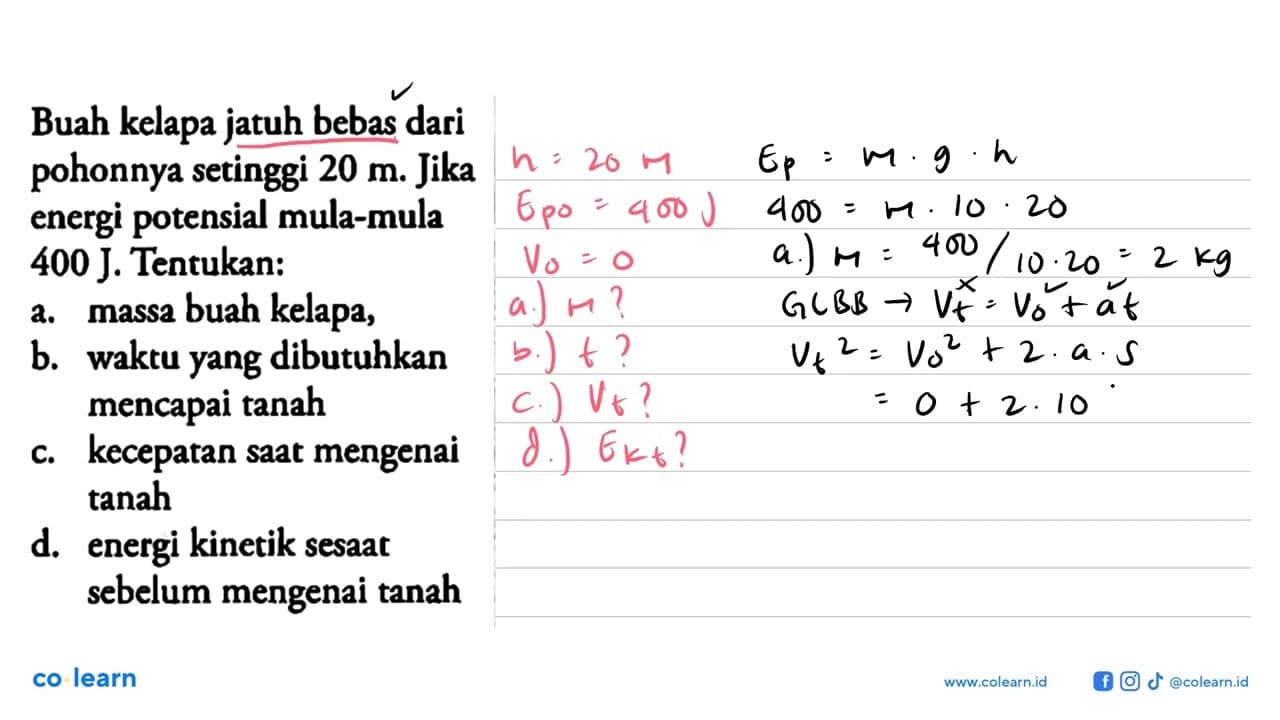 Buah kelapa jatuh bebas dari
pohonnya setinggi 20 m. Jika
energi potensial mula-mula
400 J. Tentukan:
a. massa buah kelapa,
b. waktu yang dibutuhkan
mencapai tanah
c. kecepatan saat mengenai
tanah
d. energi kinetik sesaat
sebelum mengenai tanah
h = 20 M
Epo = 400 J
Vo = 0
a.) M ?
b.) t ?
c.) Vt ?
d.) Ekt ?
Ep = m . g . h
400 = M . 10 . 20
a.) M = 400 / 10 . 20 = 2 kg
GLBB → Vt = Vo + at
Vt² = Vo² + 2 . a . s
= 0 + 2 . 10
co learn
www.colearn.id
@colearn.id